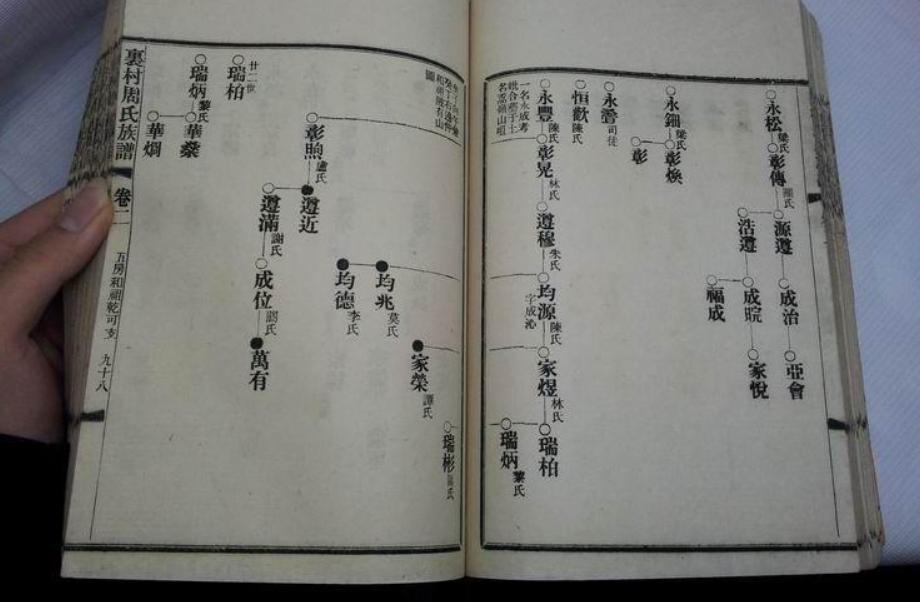 永松 梁氏
彰傳
源遵
成治
亞會
浩遵
成晥
家悅
福成
永鈿 梁氏
彰煥
彰
永譽 司徒
恒歡 陳氏
永豐 陳氏
彰晃 林氏
遵穆 朱氏
均源 陳氏
字成沁
家煜 林氏
瑞柏
瑞炳 黎氏
一名永成考
妣合塟于土
名
瑞彬
家榮 譚氏
均兆 莫氏
均德 李氏
彰煦 盧氏
遵近
遵滿 謝氏
成位
萬有
廿二世
瑞柏
瑞炳 黎氏
華燊
華烱
裏村周氏族譜
卷二
五房和祖乾可支
九十八